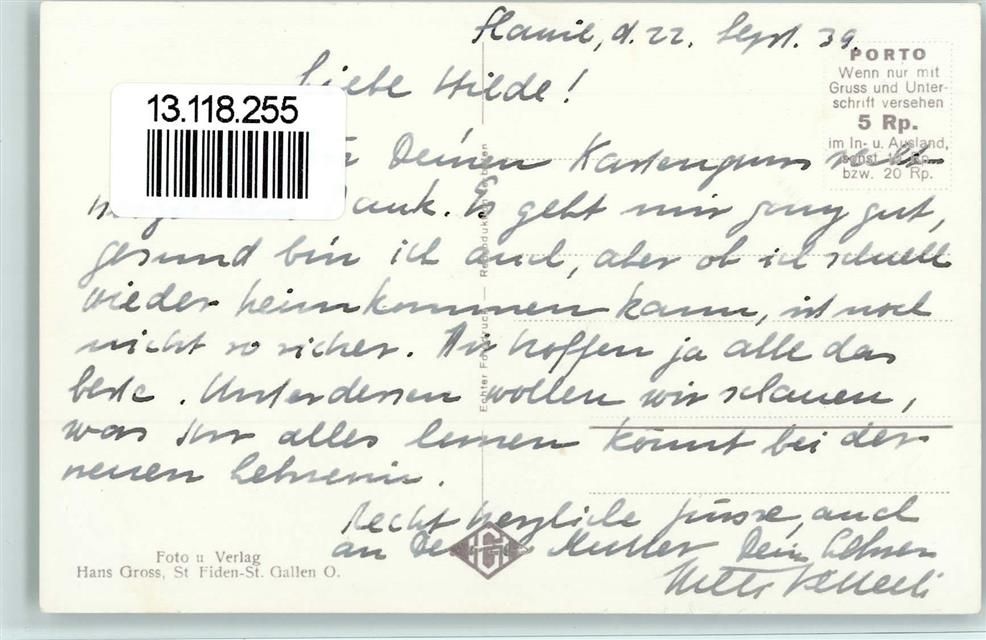 d. 22. Sept. 39.
Liebe Hilde!
13.118.255
Deinen Kartengruss recht
ank. Es geht mir ganz gut,
gesund bin ich auch, aber ob ich schnell
wieder heimkommen kann, ist noch
nicht so sicher. Wir hoffen ja alle das
beste. Unterdessen wollen wir schauen,
was Ihr alles lernen könnt bei der
neuen Lehrerin.
Recht herzliche Grüsse, auch
an Mutter Dein Lehrer
PORTO
Wenn nur mit
Gruss und Unter-
schrift versehen
5 Rp.
im In- u. Ausland,
sonst 10 Rp.
bzw. 20 Rp.
Echter Fotodruck — Reproduktion verboten
HG
Foto u Verlag
Hans Gross, St Fiden-St. Gallen O.